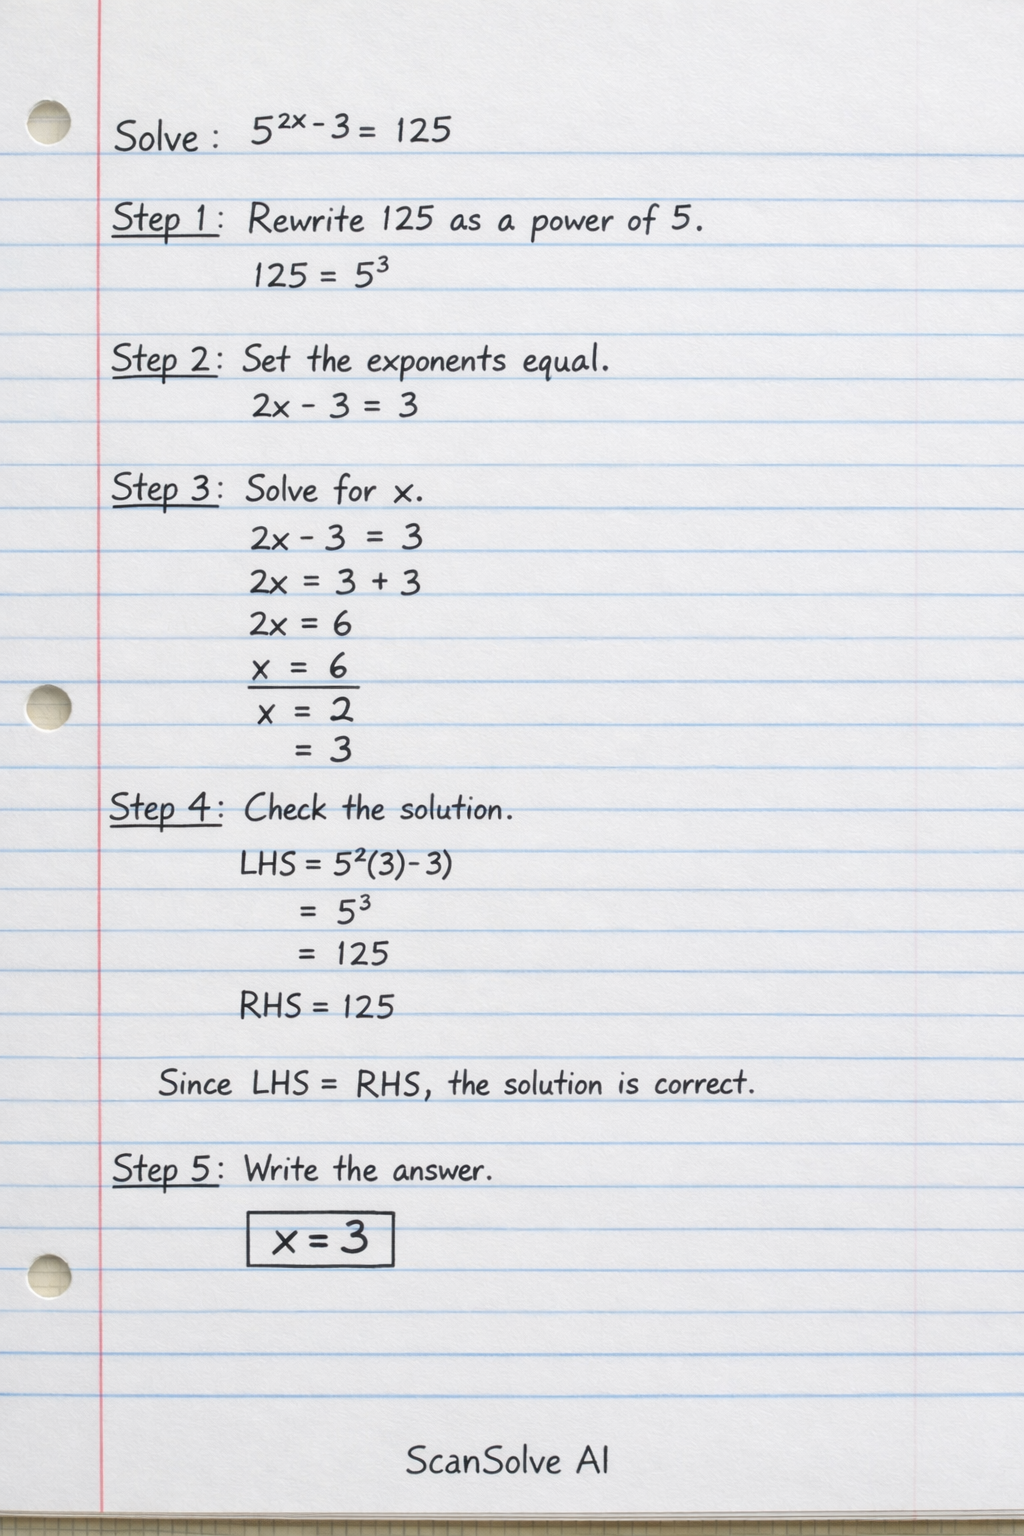 Solve : 5²ˣ⁻³ = 125
Step 1: Rewrite 125 as a power of 5.
125 = 5³
Step 2: Set the exponents equal.
2x - 3 = 3
Step 3: Solve for x.
2x - 3 = 3
2x = 3 + 3
2x = 6
x = 6
x = 2
= 3
Step 4: Check the solution.
LHS = 5²(3)-3)
= 5³
= 125
RHS = 125
Since LHS = RHS, the solution is correct.
Step 5: Write the answer.
x = 3
ScanSolve AI